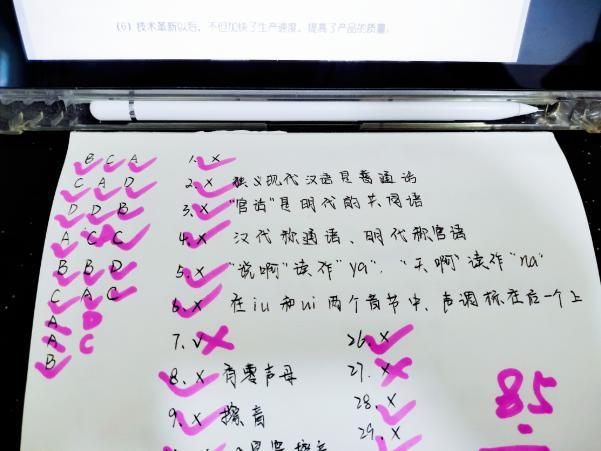 (6)技术革新以后，不但加快了生产速度，提高了产品的质量。
B C A 1. ×
C A D 2. × 狭义现代汉语是普通话
D D B 3. × "官话"是明代的共同语
A C C 4. × 汉代称通语、明代称官话
B B D 5. × "说啊"读作"ya"，"天啊"读作"na"
C A C 6. × 在iu和ui两个音节中，声调标在后一个上
A D 7. √ 26. ×
A C
B 8. × 有零声母 27. ×
9. × 擦音 28. ×
29. ×
85